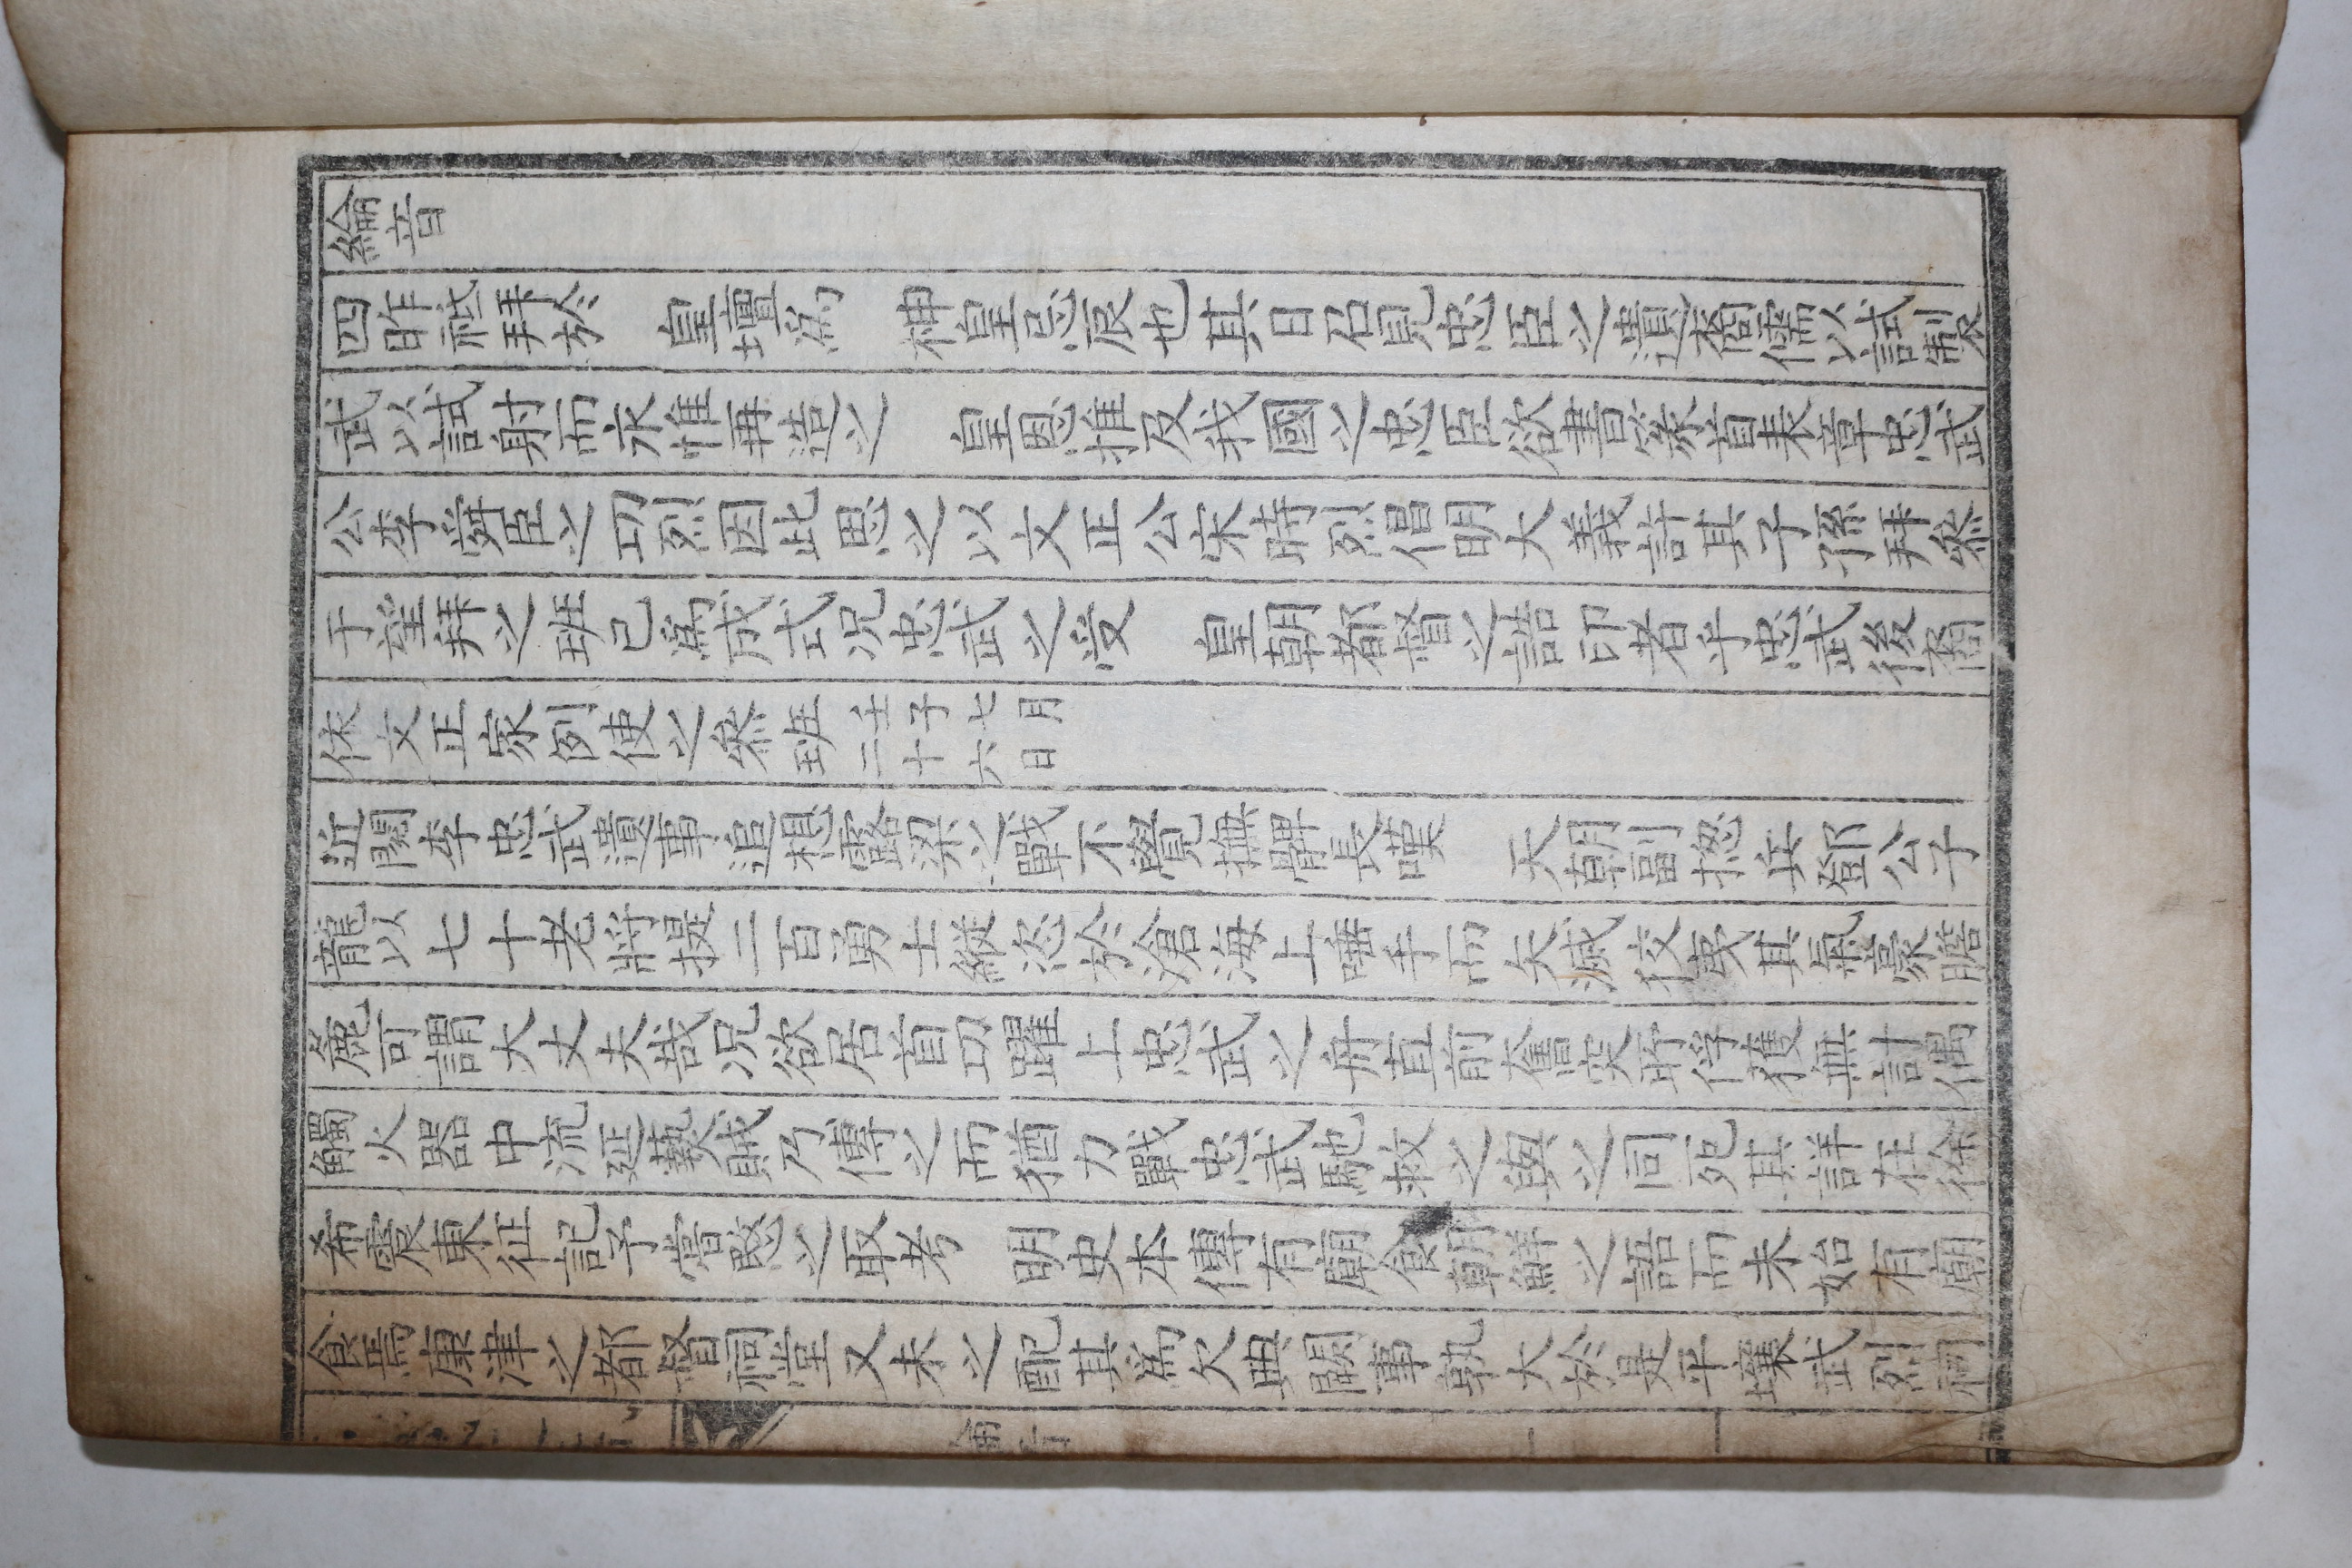 綸音
四昨祗拜於 皇壇爲 神皇忌辰也其日召見忠臣之遺裔儒以試製
武以試射而永惟再造之 皇恩推及我國之忠臣欲書篆首表章忠武
公李舜臣之功烈因此思之以文正公宋時烈倡明大義許其子孫拜參
于望拜之班已爲成式况忠武之受 皇朝都督之誥印者乎忠武後裔
依文正家例使之參班
壬子七月
二十六日
近閱李忠武遺事追想露梁之戰不覺撫髀長嘆 天朝副摠兵鄧公子
龍以七十老將提二百勇士縱恣於滄海上唾手而矢滅狡夷其氣豪膽
麁可謂大丈夫哉况欲居首功躍上忠武之舟直前奮突所俘獲無計偶
觸火器中流延爇賊乃傳之而猶力戰忠武馳救之與之同死其詳在徐
希震東征記予嘗愍之取考 明史本傳有廟食朝鮮之語而未始有廟
食焉康津之都督祠堂又未之配其爲欠典闕事孰大於是平壤武烈祠
綸音